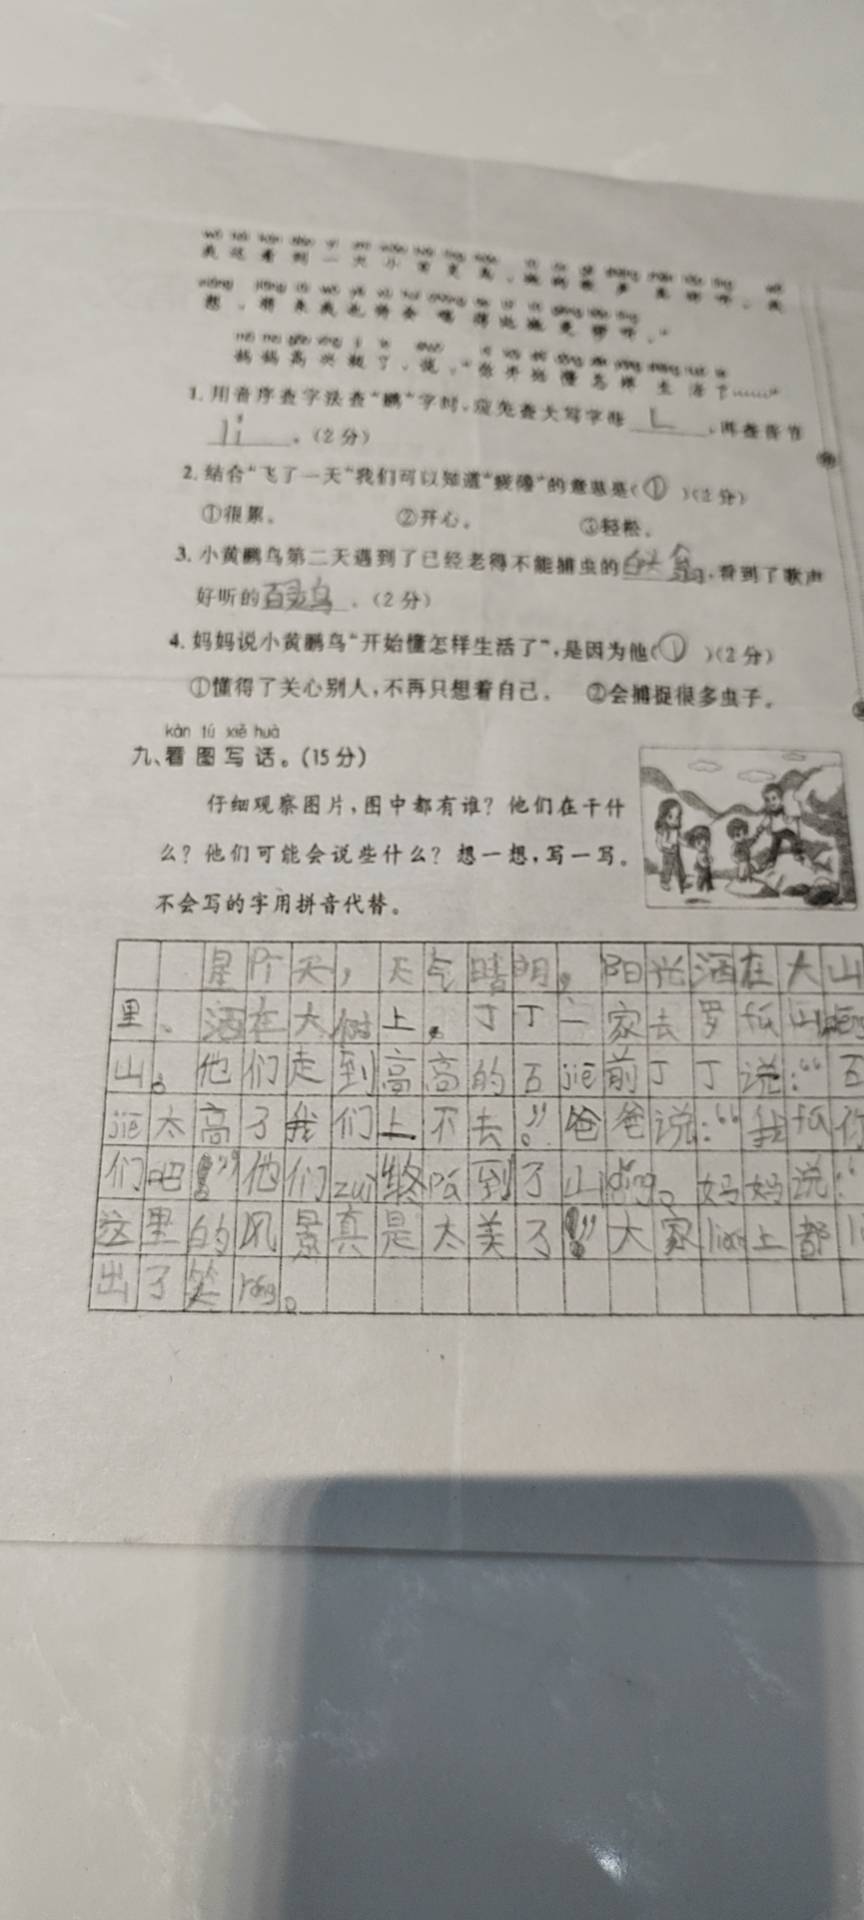 我还看到一只小百灵鸟,她的歌声真好听。我
想,将来我也许会唱得比她更好听。”
妈妈高兴极了,说:“你开始懂怎样生活了……”
1. 用音序查字法查“鹂”字时,应先查大写字母 L ,再查音节
lí 。(2分)
2. 结合“飞了一天”我们可以知道“疲倦”的意思是( ① )(2分)
①很累。 ②开心。 ③轻松。
3. 小黄鹂鸟第二天遇到了已经老得不能捕虫的 ,看到了歌声
好听的百灵鸟 。(2分)
4. 妈妈说小黄鹂鸟“开始懂怎样生活了”,是因为他( ① )(2分)
①懂得了关心别人,不再只想着自己。 ②会捕捉很多虫子。
kàn tú xiě huà
九、看图写话。(15分)
仔细观察图片,图中都有谁?他们在干什
么?他们可能会说些什么?想一想,写一写。
不会写的字用拼音代替。
星 天,天气晴朗,阳光洒在大山
里、洒在大树上。丁丁一家去罗 山
山。他们走到高高的 jiē前丁丁说:“
jiē太高了我们上不去。”爸爸说:“我 你
们吧!”他们zuì终pá到了山dǐng。妈妈说:“
这里的风景真是太美了!”大家liǎn上都
出了笑róng。